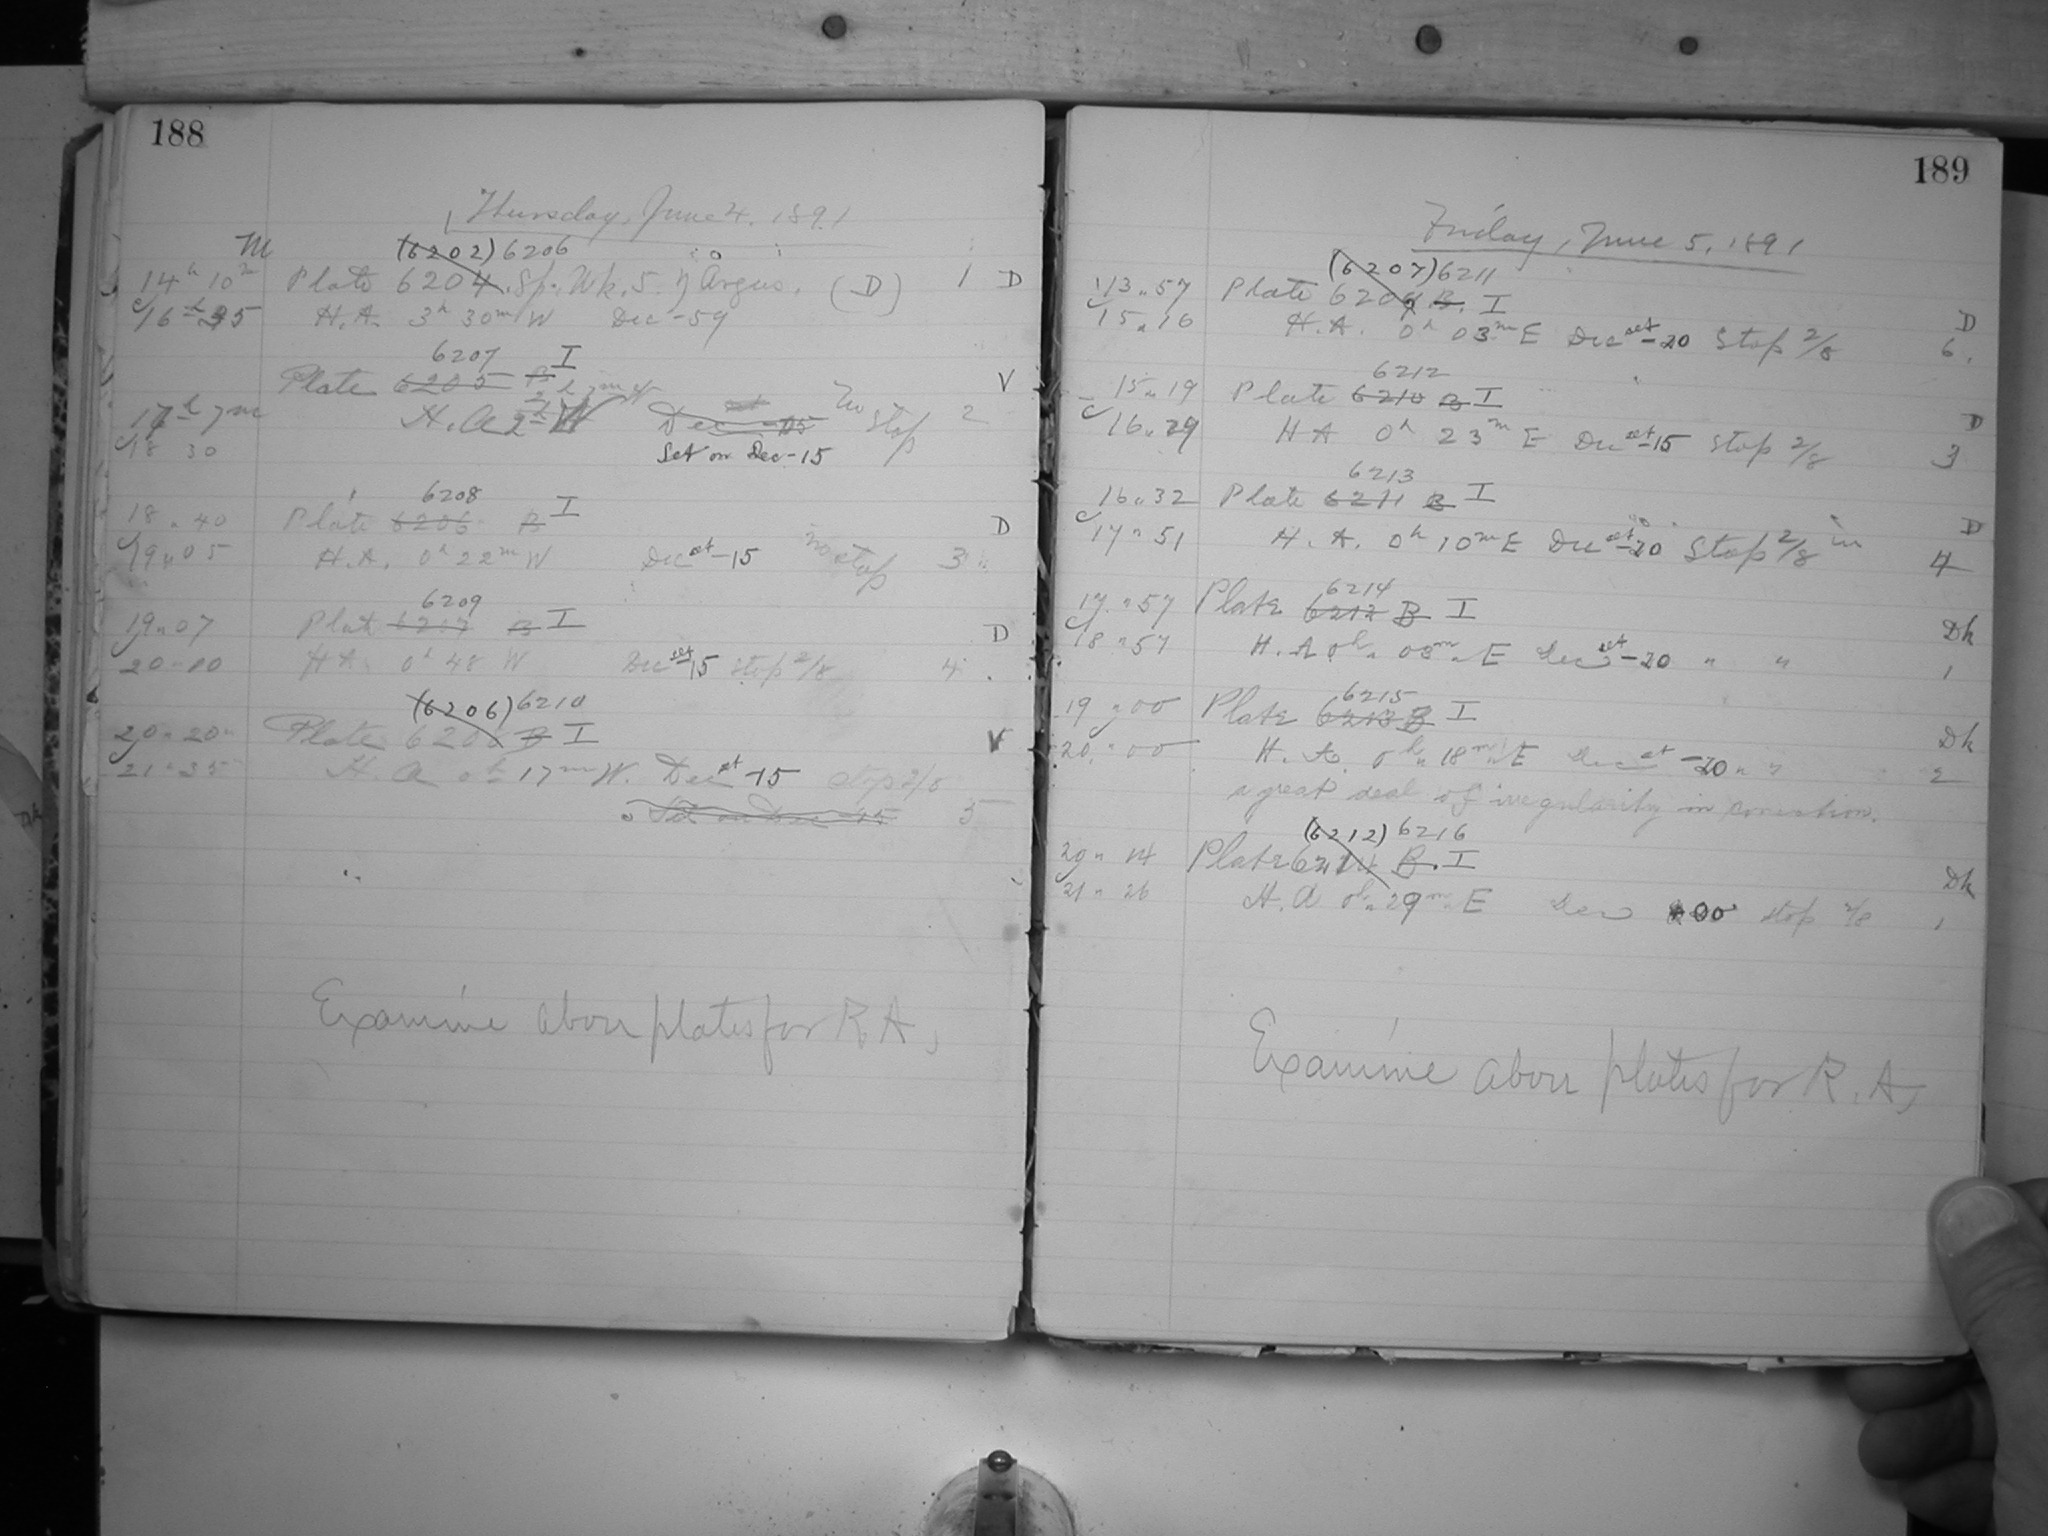 188
Thursday, June 4. 1891
M
(6202) 6206
14h 10m Plate 6204. Sp. Wk. S. η Argus. (D) 1 D
16h 35 H.A. 3h 30m W Dec -59
6207 I
Plate 6205 B V
17h 7m H.A 2h W Dec -15 no stop 2
18 30 Set on Dec -15
6208
18 " 40 Plate 6206 B I D
19 " 05 H.A. 0h 22m W Dec set -15 no stop 3
6209
19 " 07 Plate 6207 B I D
20 " 10 H.A. 0h 48 W Dec set -15 stop 2/8 4.
(6206) 6210
20 " 20 Plate 6208 B I V
21 " 35 H.A 0h 17m W. Dec set -15 stop 2/8
Set on Dec -15 5
Examine above plates for R.A.
189
Friday, June 5, 1891
(6207) 6211
13 " 57 Plate 6209 B. I D
15 " 16 H.A. 0h 03m E Dec set -20 Stop 2/8 6.
6212
15 " 19 Plate 6210 B I D
16 " 29 H A 0h 23m E Dec set -15 Stop 2/8 3
6213
16 " 32 Plate 6211 B I D
17 " 51 H.A. 0h 10m E Dec set -20 Stop 2/8 in 4
6214
17 " 57 Plate 6212 B I Dk
18 " 57 H.A 0h " 08m " E Dec set -20 " " 1
6215
19 " 00 Plate 6213 B I Dk
20 " 00 H.A. 0h " 18m " E Dec set -20 " " 2
a great deal of irregularity in correction.
(6212) 6216
20 " 14 Plate 6214 B. I Dk
21 " 26 H.A 0h " 29m " E Dec 00 stop 2/8 1
Examine above plates for R.A.